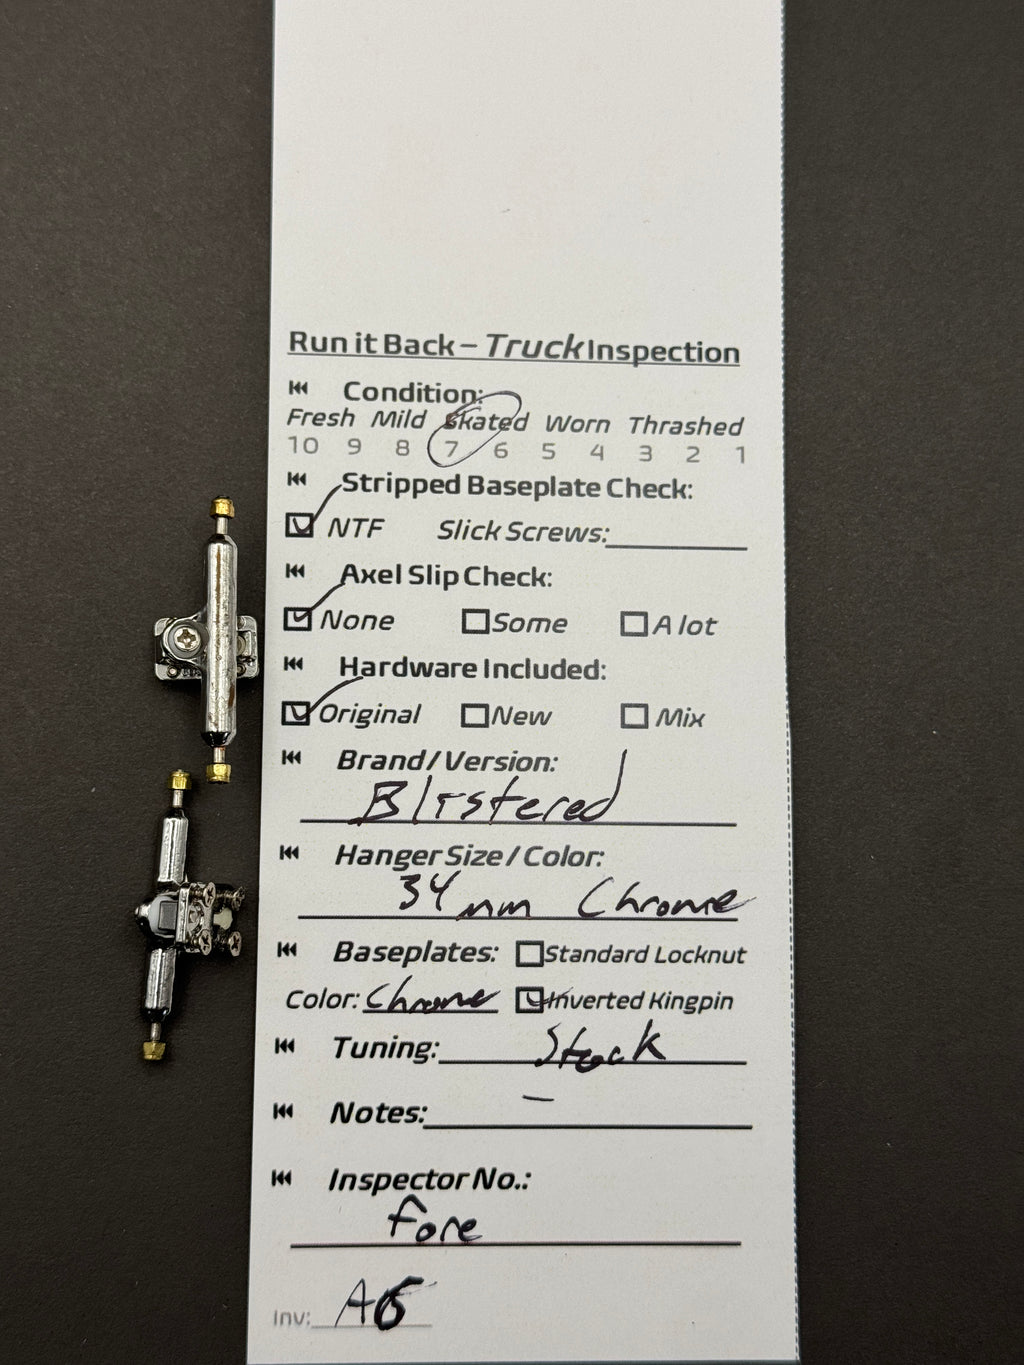 Run it Back – Truck Inspection
Condition:
Fresh Mild Skated Worn Thrashed
10 9 8 7 6 5 4 3 2 1
Stripped Baseplate Check:
NTF Slick Screws:
Axel Slip Check:
None Some A lot
Hardware Included:
Original New Mix
Brand/Version:
Blistered
Hanger Size/Color:
34mm Chrome
Baseplates: Standard Locknut
Color: Chrome Inverted Kingpin
Tuning: Stock
Notes: –
Inspector No.:
Fore
Inv: A6